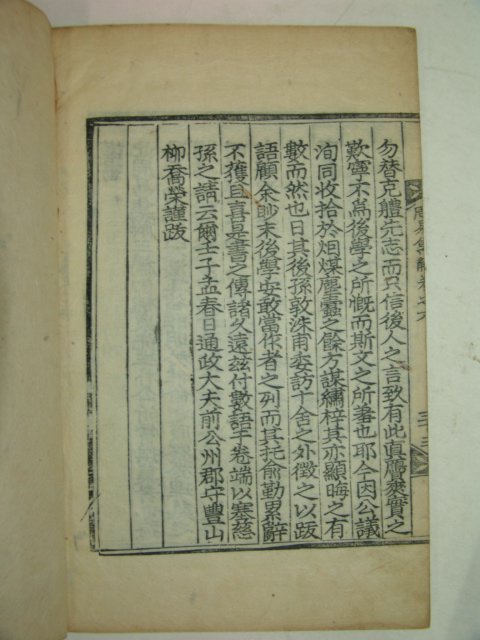 勿替克體先志而只信後人之言致有此眞贗爽實之
歎寧不爲後學之所慨而斯文之所羞也耶今因公議
洵同收拾於烟煤塵蠹之餘方謀繡梓其亦顯晦之有
數而然也日其後孫敦洙甫委訪十舍之外徵之以跋
語顧余眇末後學安敢當作者之列而其托愈勤累辭
不獲且喜是書之傳諸久遠玆付數語于卷端以塞慈
孫之請云爾壬子孟春日通政大夫前公州郡守豐山
柳喬榮謹跋
周易集解卷之六
三十三